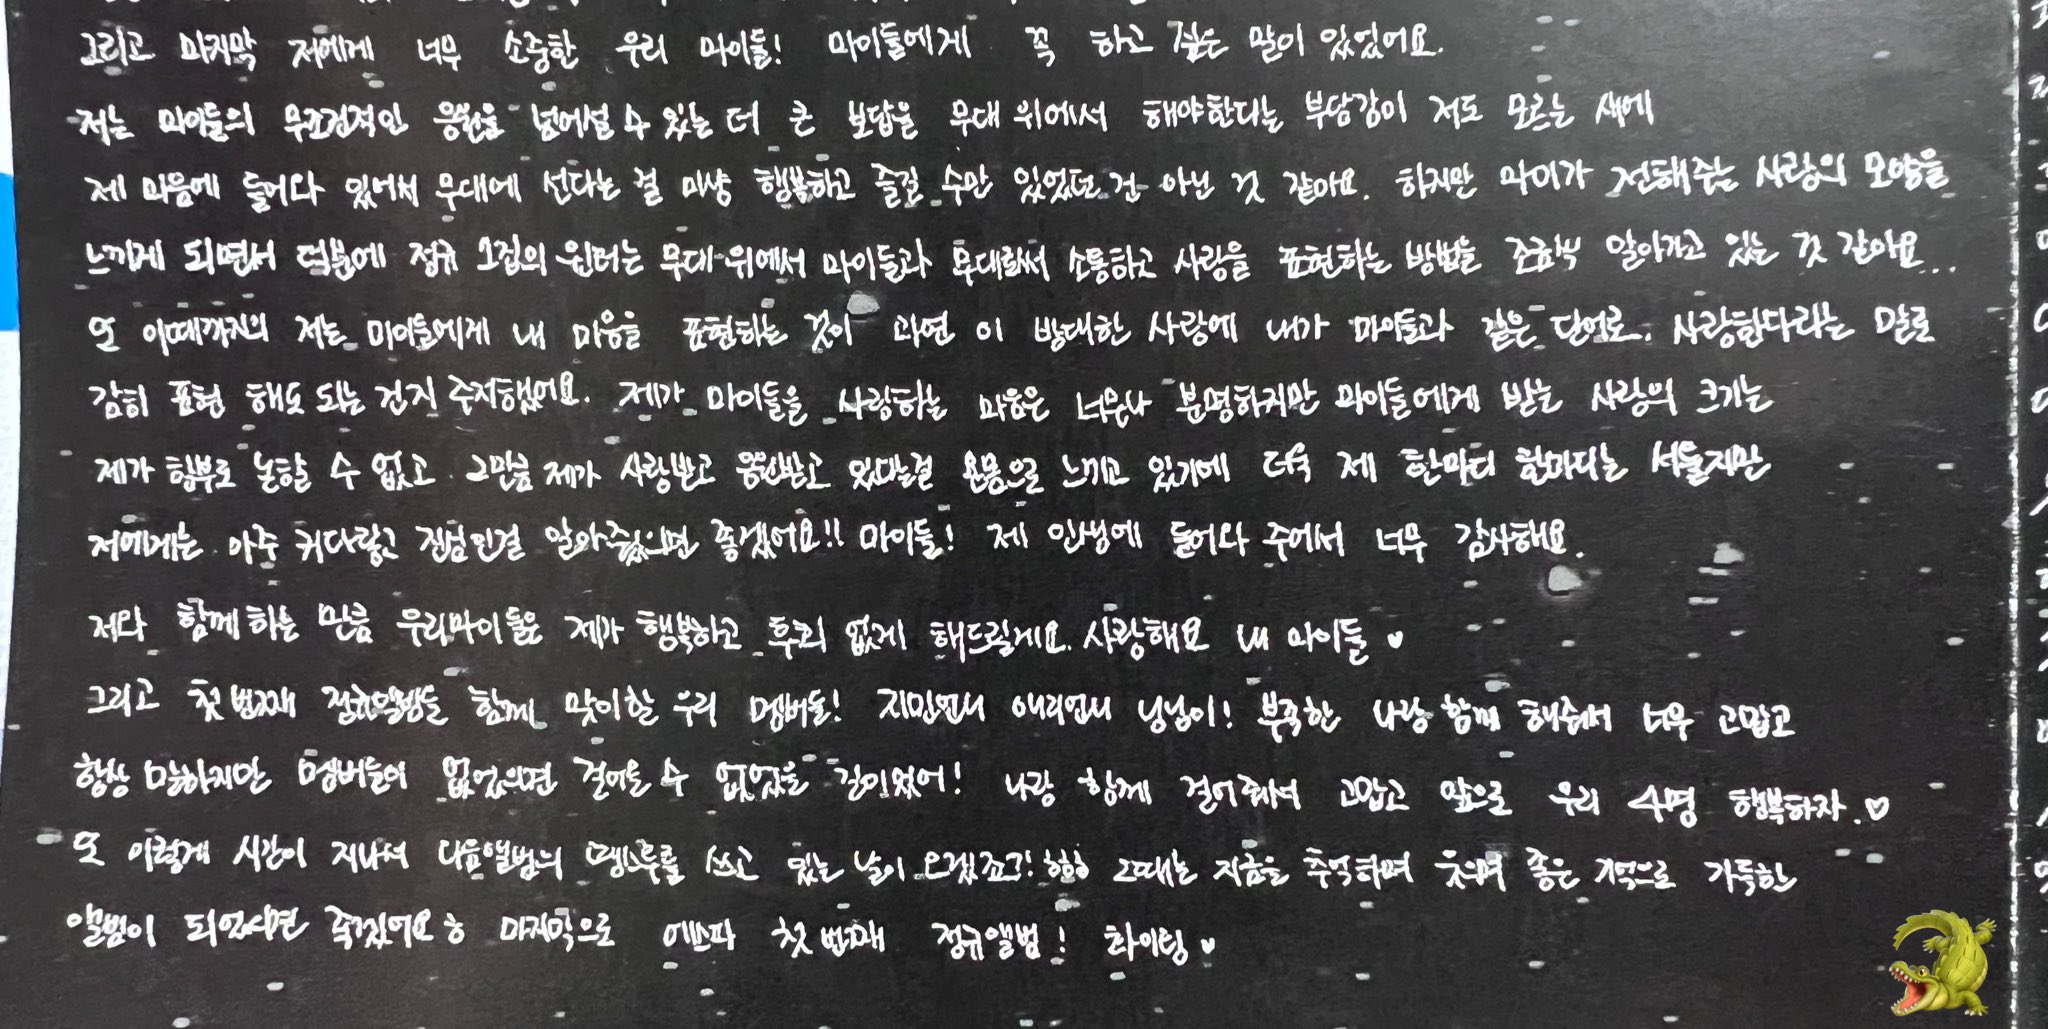 그리고 마지막 저에게 너무 소중한 우리 마이들! 마이들에게 꼭 하고 싶은 말이 있었어요.
저는 마이들의 무조건적인 응원을 넘어설 수 있는 더 큰 보답을 무대 위에서 해야한다는 부담감이 저도 모르는 새에
제 마음에 들어와 있어서 무대에 선다는 걸 마냥 행복하고 즐길 수만 있었던 건 아닌 것 같아요. 하지만 마이가 전해주는 사랑의 모양을
느끼게 되면서 덕분에 정규 1집의 윈터는 무대 위에서 마이들과 무대로써 소통하고 사랑을 표현하는 방법을 조금씩 알아가고 있는 것 같아요...
또 이때까지의 저는 마이들에게 내 마음을 표현하는 것이 과연 이 방대한 사랑에 내가 마이들과 같은 단어로, 사랑한다라는 말로
감히 표현 해도 되는 건지 주저했어요. 제가 마이들을 사랑하는 마음은 너무나 분명하지만 마이들에게 받는 사랑의 크기는
제가 함부로 논할 수 없고 그만큼 제가 사랑받고 응원받고 있다는걸 온몸으로 느끼고 있기에 더욱 제 한마디 한마디는 서툴지만
저에게는 아주 커다랗고 진심인걸 알아줬으면 좋겠어요!! 마이들! 제 인생에 들어와 주어서 너무 감사해요.
저와 함께 하는 만큼 우리마이들은 제가 행복하고 후회 없게 해드릴게요. 사랑해요 내 마이들 ♥
그리고 첫 번째 정규앨범을 함께 맞이할 우리 멤버들! 지민언니 애리언니 닝닝이! 부족한 나랑 함께 해줘서 너무 고맙고
항상 말하지만 멤버들이 없었으면 걸어올 수 없었을 길이었어! 나랑 함께 걸어줘서 고맙고 앞으로 우리 4명 행복하자.♡
또 이렇게 시간이 지나서 다음앨범의 땡스투를 쓰고 있는 날이 오겠죠?! 하하 그때는 지금을 추억하며 웃으며 좋은 기억으로 가득한
앨범이 되었으면 좋겠어요ㅎ 마지막으로 에스파 첫 번째 정규앨범! 화이팅♥